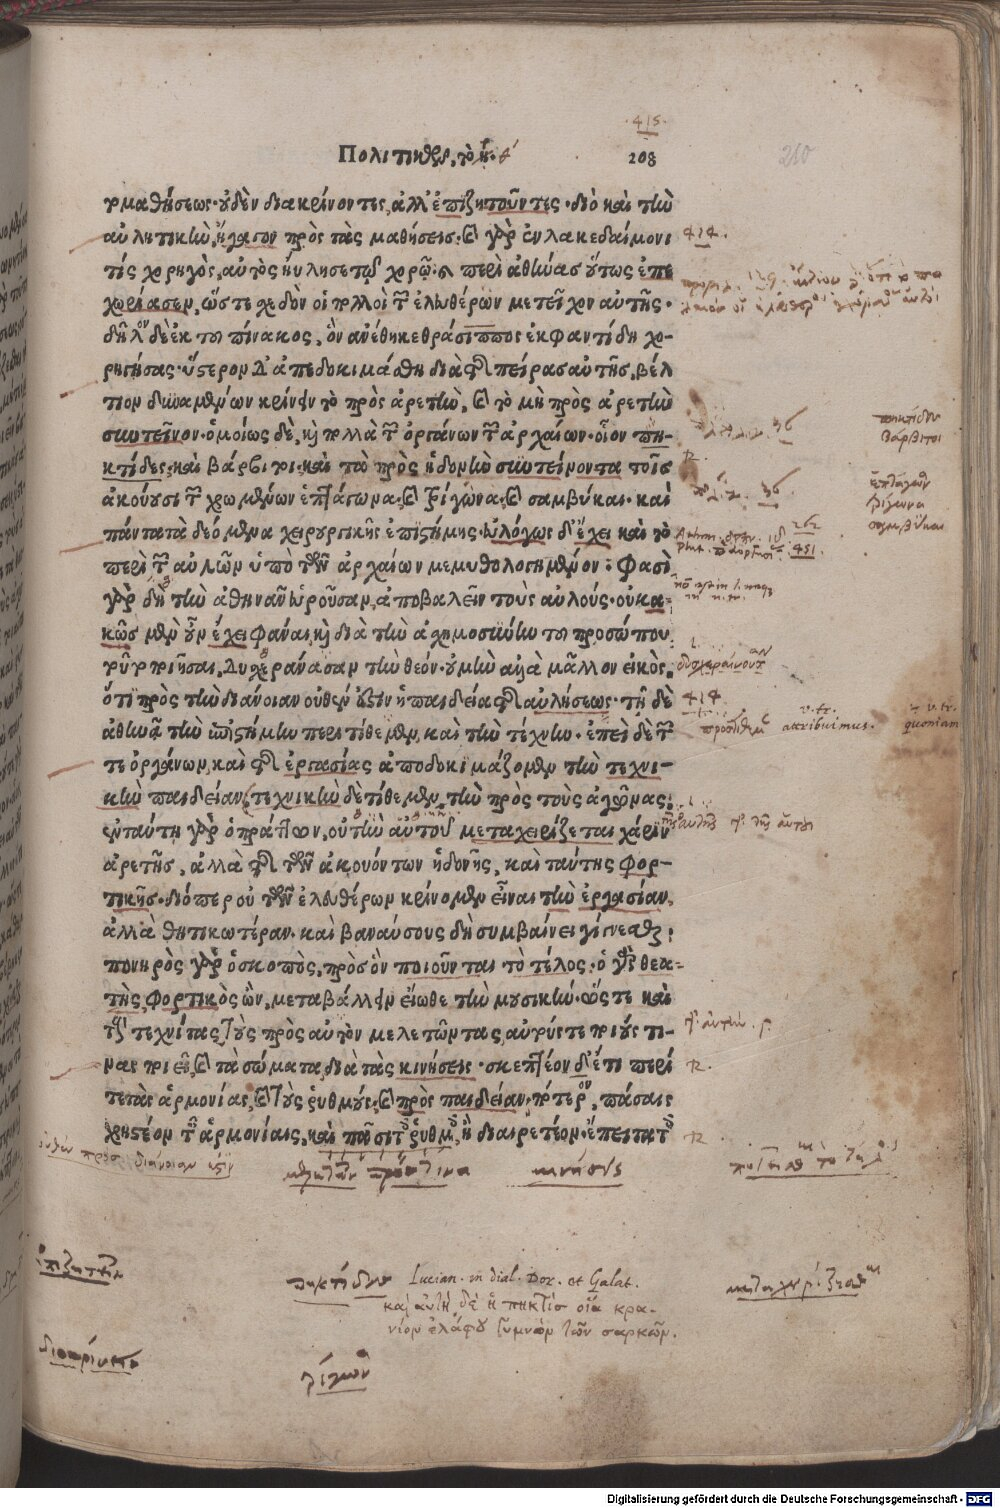 415.
Πολιτικῶν, τὸ η. ε
208
210
ρ μαθήσεως· οὐδὲν διακρίνοντες, ἀλλ' ἐπιζητοῦντες· διὸ καὶ τὴν
αὐλητικὴν ἤγαγον πρὸς τὰς μαθήσεις· καὶ γὰρ ἐν λακεδαίμονι
414.
τὶς χορηγὸς, αὐτὸς ηὔλησε τῷ χορῷ· καὶ περὶ ἀθήνας οὕτως ἐπε
χωρίασεν, ὥστε σχεδὸν οἱ πολλοὶ τῶν ἐλευθέρων μετεῖχον αὐτῆς·
δῆλον δὲ ἐκ τοῦ πίνακος, ὃν ἀνέθηκε θράσιππος ἐκφαντίδη χο-
ρηγήσας· ὕστερον δ' ἀπεδοκιμάσθη διὰ τῆς πείρας αὐτῆς, βέλ
τιον δυναμένων κρίνειν τὸ πρὸς ἀρετὴν, καὶ τὸ μὴ πρὸς ἀρετὴν
συντεῖνον· ὁμοίως δὲ, καὶ πολλὰ τῶν ὀργάνων τῶν ἀρχαίων· οἷον πη-
κτίδες· καὶ βάρβιτοι· καὶ τὰ πρὸς ἡδονὴν συντείνοντα τοῖς
R.
ἀκούουσι τῶν χρωμένων ἑπτάγωνα· καὶ τρίγωνα· καὶ σαμβύκαι· καὶ
πάντα τὰ δεόμενα χειρουργικῆς ἐπιστήμης· εὐλόγως δ' ἔχει καὶ τὸ
262
451.
περὶ τῶν αὐλῶν ὑπὸ τῶν ἀρχαίων μεμυθολογημένον· φασὶ
γὰρ δὴ τὴν ἀθηνᾶν εὑροῦσαν, ἀποβαλεῖν τοὺς αὐλούς· οὐ κα-
κῶς μὲν οὖν ἔχει φάναι, καὶ διὰ τὴν ἀσχημοσύνην τοῦ προσώπου
τοῦτο ποιῆσαι, δυσχεράνασαν τὴν θεόν· οὐ μὴν ἀλλὰ μᾶλλον εἰκὸς,
ὅτι πρὸς τὴν διάνοιαν οὐθέν ἐστιν ἡ παιδεία τῆς αὐλήσεως· τῇ δὲ
414.
ἀθηνᾷ τὴν ἐπιστήμην περιτίθεμεν, καὶ τὴν τέχνην· ἐπεὶ δὲ τῶν
v. tr.
attribuimus.
v. tr.
quoniam
τε ὀργάνων, καὶ τῆς ἐργασίας ἀποδοκιμάζομεν τὴν τεχνι-
κὴν παιδείαν (τεχνικὴν δὲ τίθεμεν, τὴν πρὸς τοὺς ἀγῶνας·
ἐν ταύτῃ γὰρ ὁ πράττων, οὐ τὴν αὐτοῦ μεταχειρίζεται χάριν
ἀρετῆς, ἀλλὰ τῆς τῶν ἀκουόντων ἡδονῆς, καὶ ταύτης φορ-
τικῆς· διόπερ οὐ τῶν ἐλευθέρων κρίνομεν εἶναι τὴν ἐργασίαν,
ἀλλὰ θητικωτέραν· καὶ βαναύσους δὴ συμβαίνει γίγνεσθαι·
πονηρὸς γὰρ ὁ σκοπὸς, πρὸς ὃν ποιοῦνται τὸ τέλος· ὁ γὰρ θεα-
τὴς φορτικὸς ὢν, μεταβάλλειν εἴωθε τὴν μουσικήν· ὥστε καὶ
τοὺς τεχνίτας τοὺς πρὸς αὐτὸν μελετῶντας, αὐτούς τε ποιούς τι-
νας ποιεῖ, καὶ τὰ σώματα, διὰ τὰς κινήσεις· σκεπτέον δ' ἔτι περί
R.
τε τὰς ἁρμονίας, καὶ τοὺς ῥυθμούς· καὶ πρὸς παιδείαν, πότερον, πάσαις
χρηστέον ταῖς ἁρμονίαις, καὶ πᾶσι τοῖς ῥυθμοῖς, ἢ διαιρετέον· ἔπειτα τοῖς
R.
κινήσεις
Lucian. in dial. Dor. et Galat.
καὶ αὐτὴ δὲ ἡ πηκτὶς οἵα κρα-
νίον ἐλάφου γυμνὸν τῶν σαρκῶν.
Digitalisierung gefördert durch die Deutsche Forschungsgemeinschaft - DFG